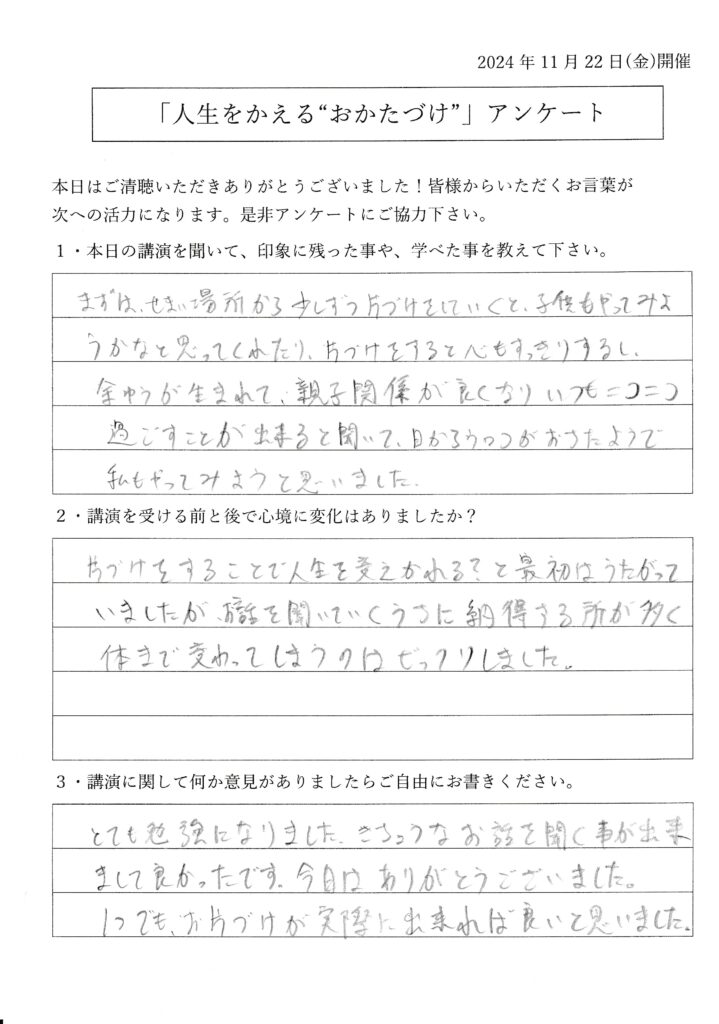 2024年11月22日(金)開催
「人生をかえる“おかたづけ”」アンケート
本日はご清聴いただきありがとうございました！皆様からいただくお言葉が
次への活力になります。是非アンケートにご協力下さい。
１・本日の講演を聞いて、印象に残った事や、学べた事を教えて下さい。
まずは、せまい場所から少しずつ片づけをしていくと、子供もやってみよ
うかなと思ってくれたり、片づけをすると心もすっきりするし、
余ゆうが生まれて、親子関係が良くなりいつもニコニコ
過ごすことが出来ると聞いて、目からうロコがおちたようで
私もやってみようと思いました。
２・講演を受ける前と後で心境に変化はありましたか？
片づけをすることで人生を変えかれる？と最初はうたがって
いましたが、お話を聞いていくうちに納得する所が多く
体まで変わってしまうのはビックリしました。
３・講演に関して何か意見がありましたらご自由にお書きください。
とても勉強になりました。きちょうなお話を聞く事が出来
まして良かったです。今日はありがとうございました。
1つでも、お片づけが実際に出来れば良いと思いました。